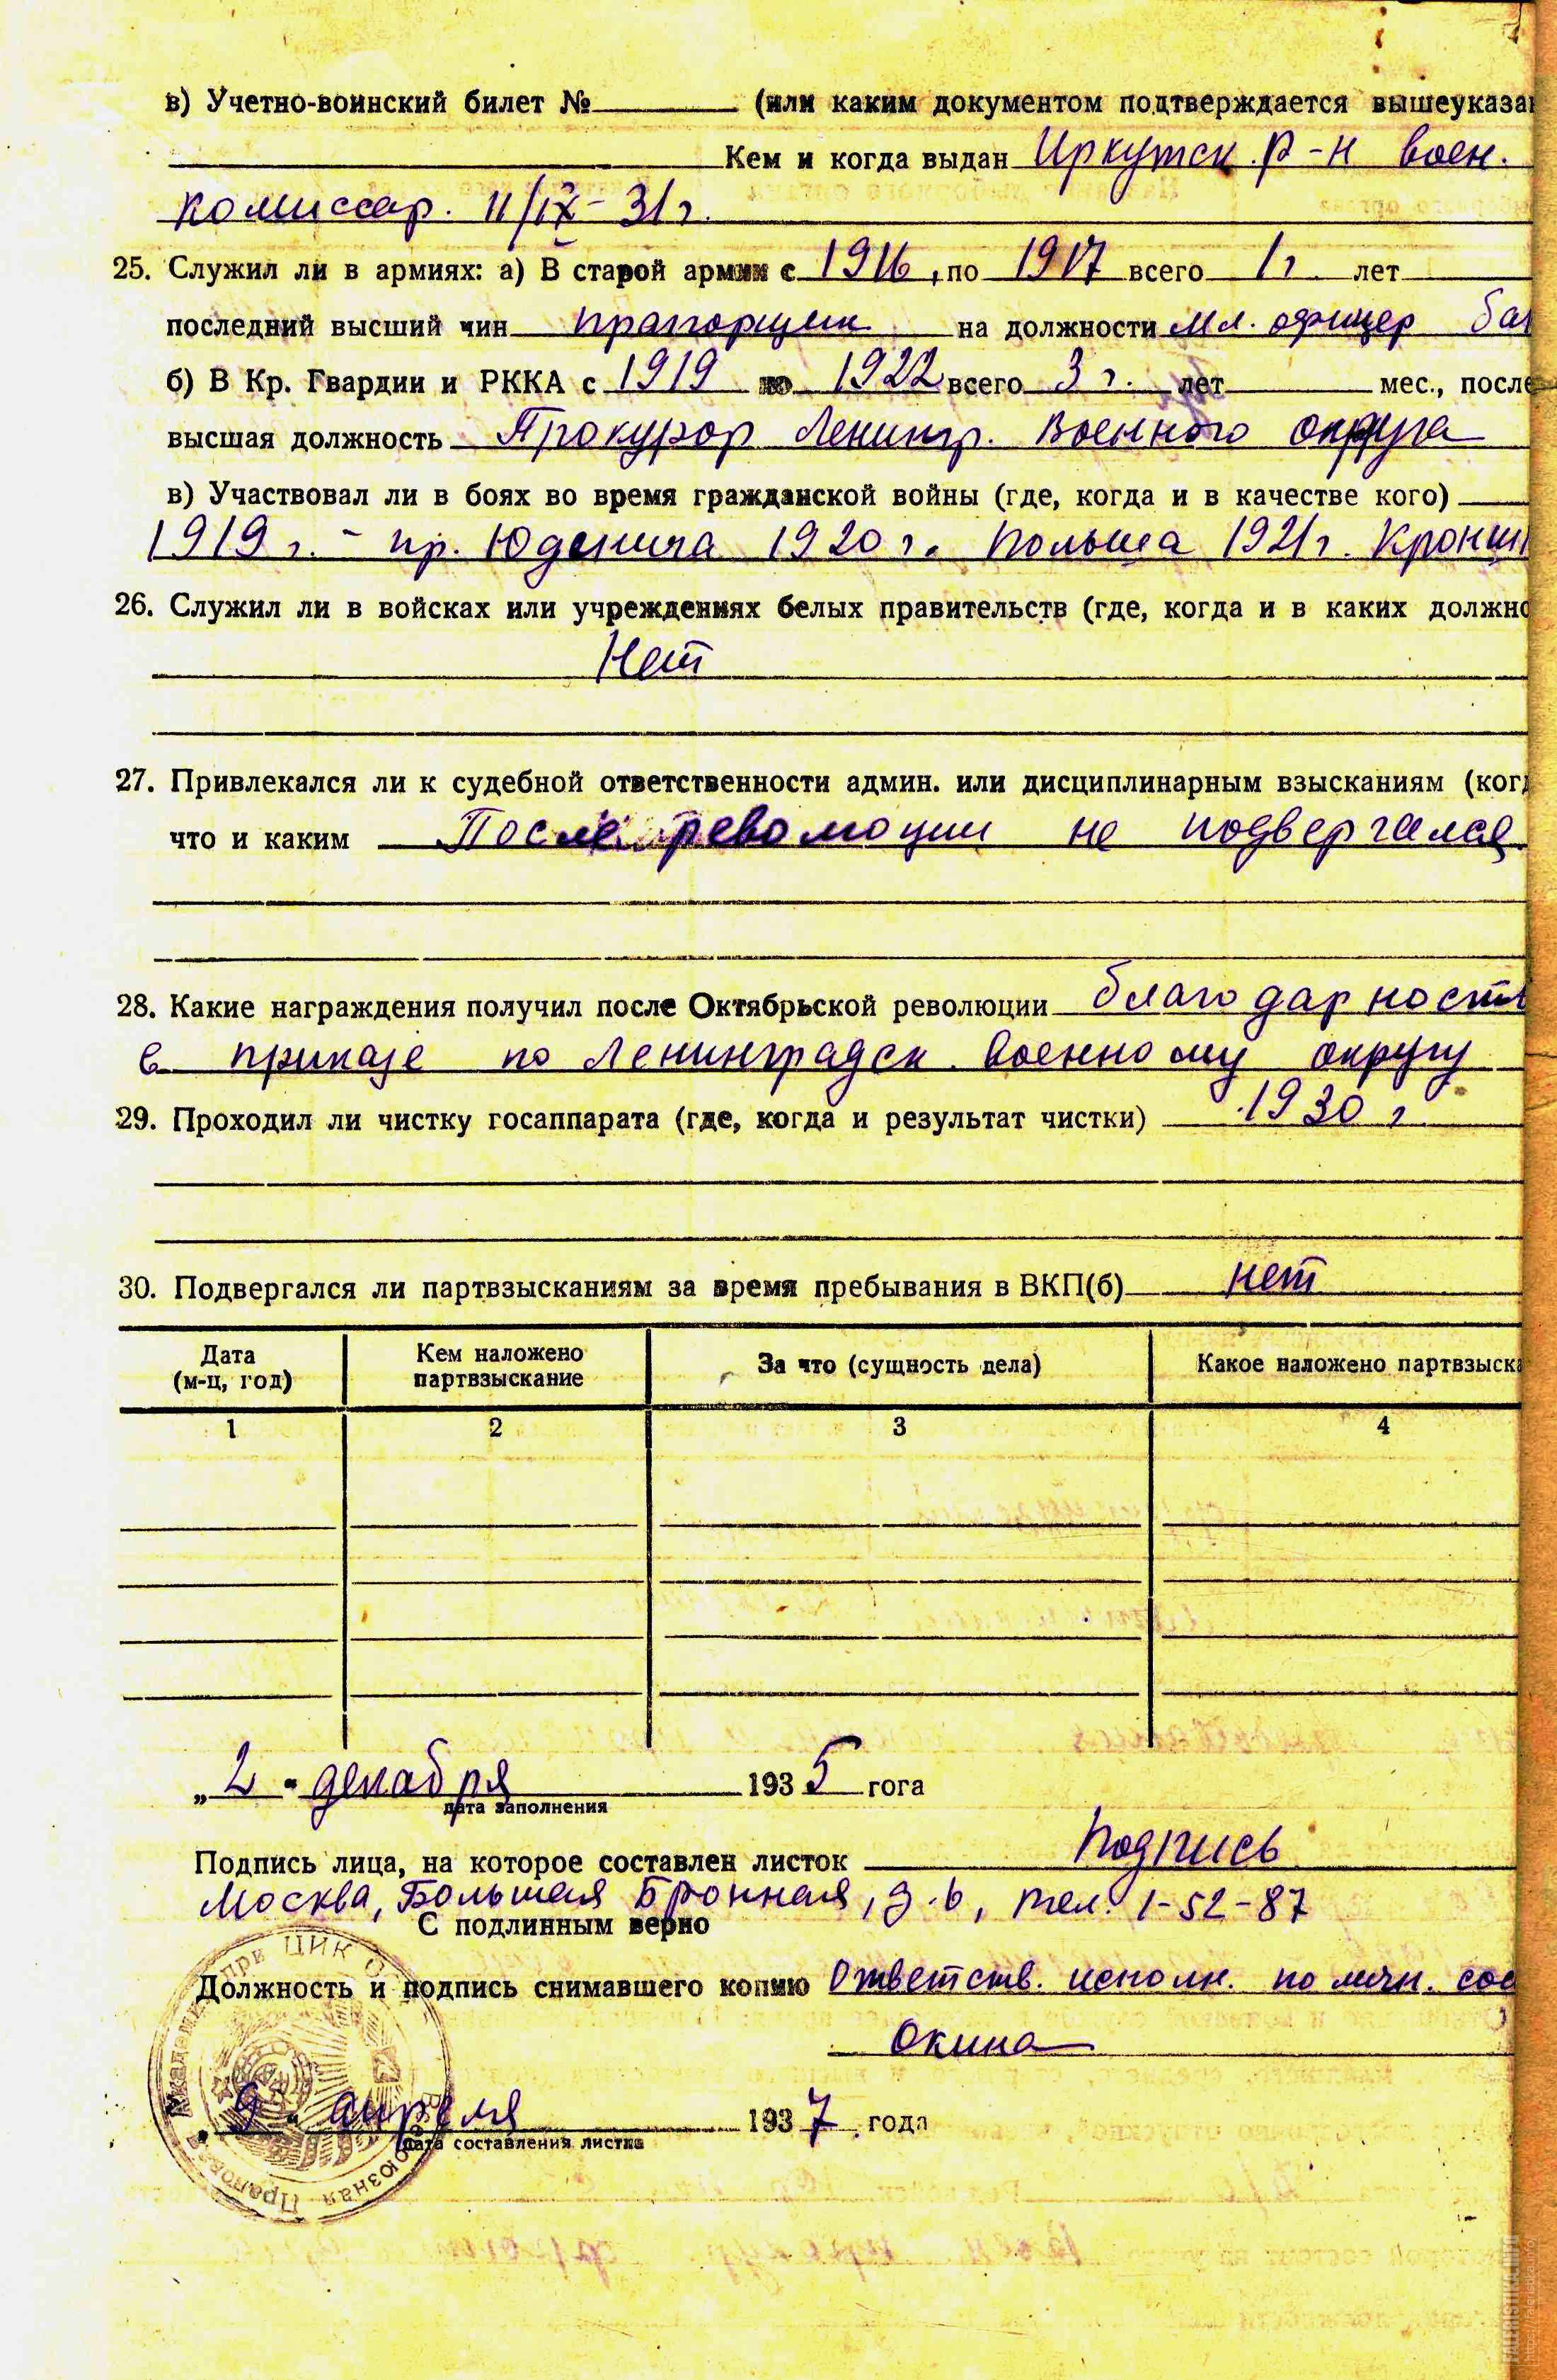 в) Учетно-воинский билет №______ (или каким документом подтверждается вышеуказан
Кем и когда выдан Иркутск. р-н воен.
комиссар. 11/IX-31 г.
25. Служил ли в армиях: а) В старой армии с 1916, по 1917 всего 1 г. лет
последний высший чин прапорщик на должности мл. офицер бат
б) В Кр. Гвардии и РККА с 1919 по 1922 всего 3 г. лет ______ мес., после
высшая должность Прокурор Ленингр. Военного округа
в) Участвовал ли в боях во время гражданской войны (где, когда и в качестве кого)
1919 г. - пр. Юденича 1920 г. Польша 1921 г. Кроншт
26. Служил ли в войсках или учреждениях белых правительств (где, когда и в каких должно
Нет
27. Привлекался ли к судебной ответственности админ. или дисциплинарным взысканиям (когд
что и каким После революции не подвергался
28. Какие награждения получил после Октябрьской революции благодарность
в приказе по Ленинградск. военному округу
29. Проходил ли чистку госаппарата (где, когда и результат чистки) 1930 г.
30. Подвергался ли партвзысканиям за время пребывания в ВКП(б) нет
Дата (м-ц, год) Кем наложено партвзыскание За что (сущность дела) Какое наложено партвзыска
1 2 3 4
„2" декабря 1935 гога
дата заполнения
Подпись лица, на которое составлен листок Подпись
Москва, Большая Бронная, д. 6, тел. 1-52-87
С подлинным верно
Должность и подпись снимавшего копию Ответств. исполн. по личн. сос
Окина
„9" апреля 1937 года
дата составления листка